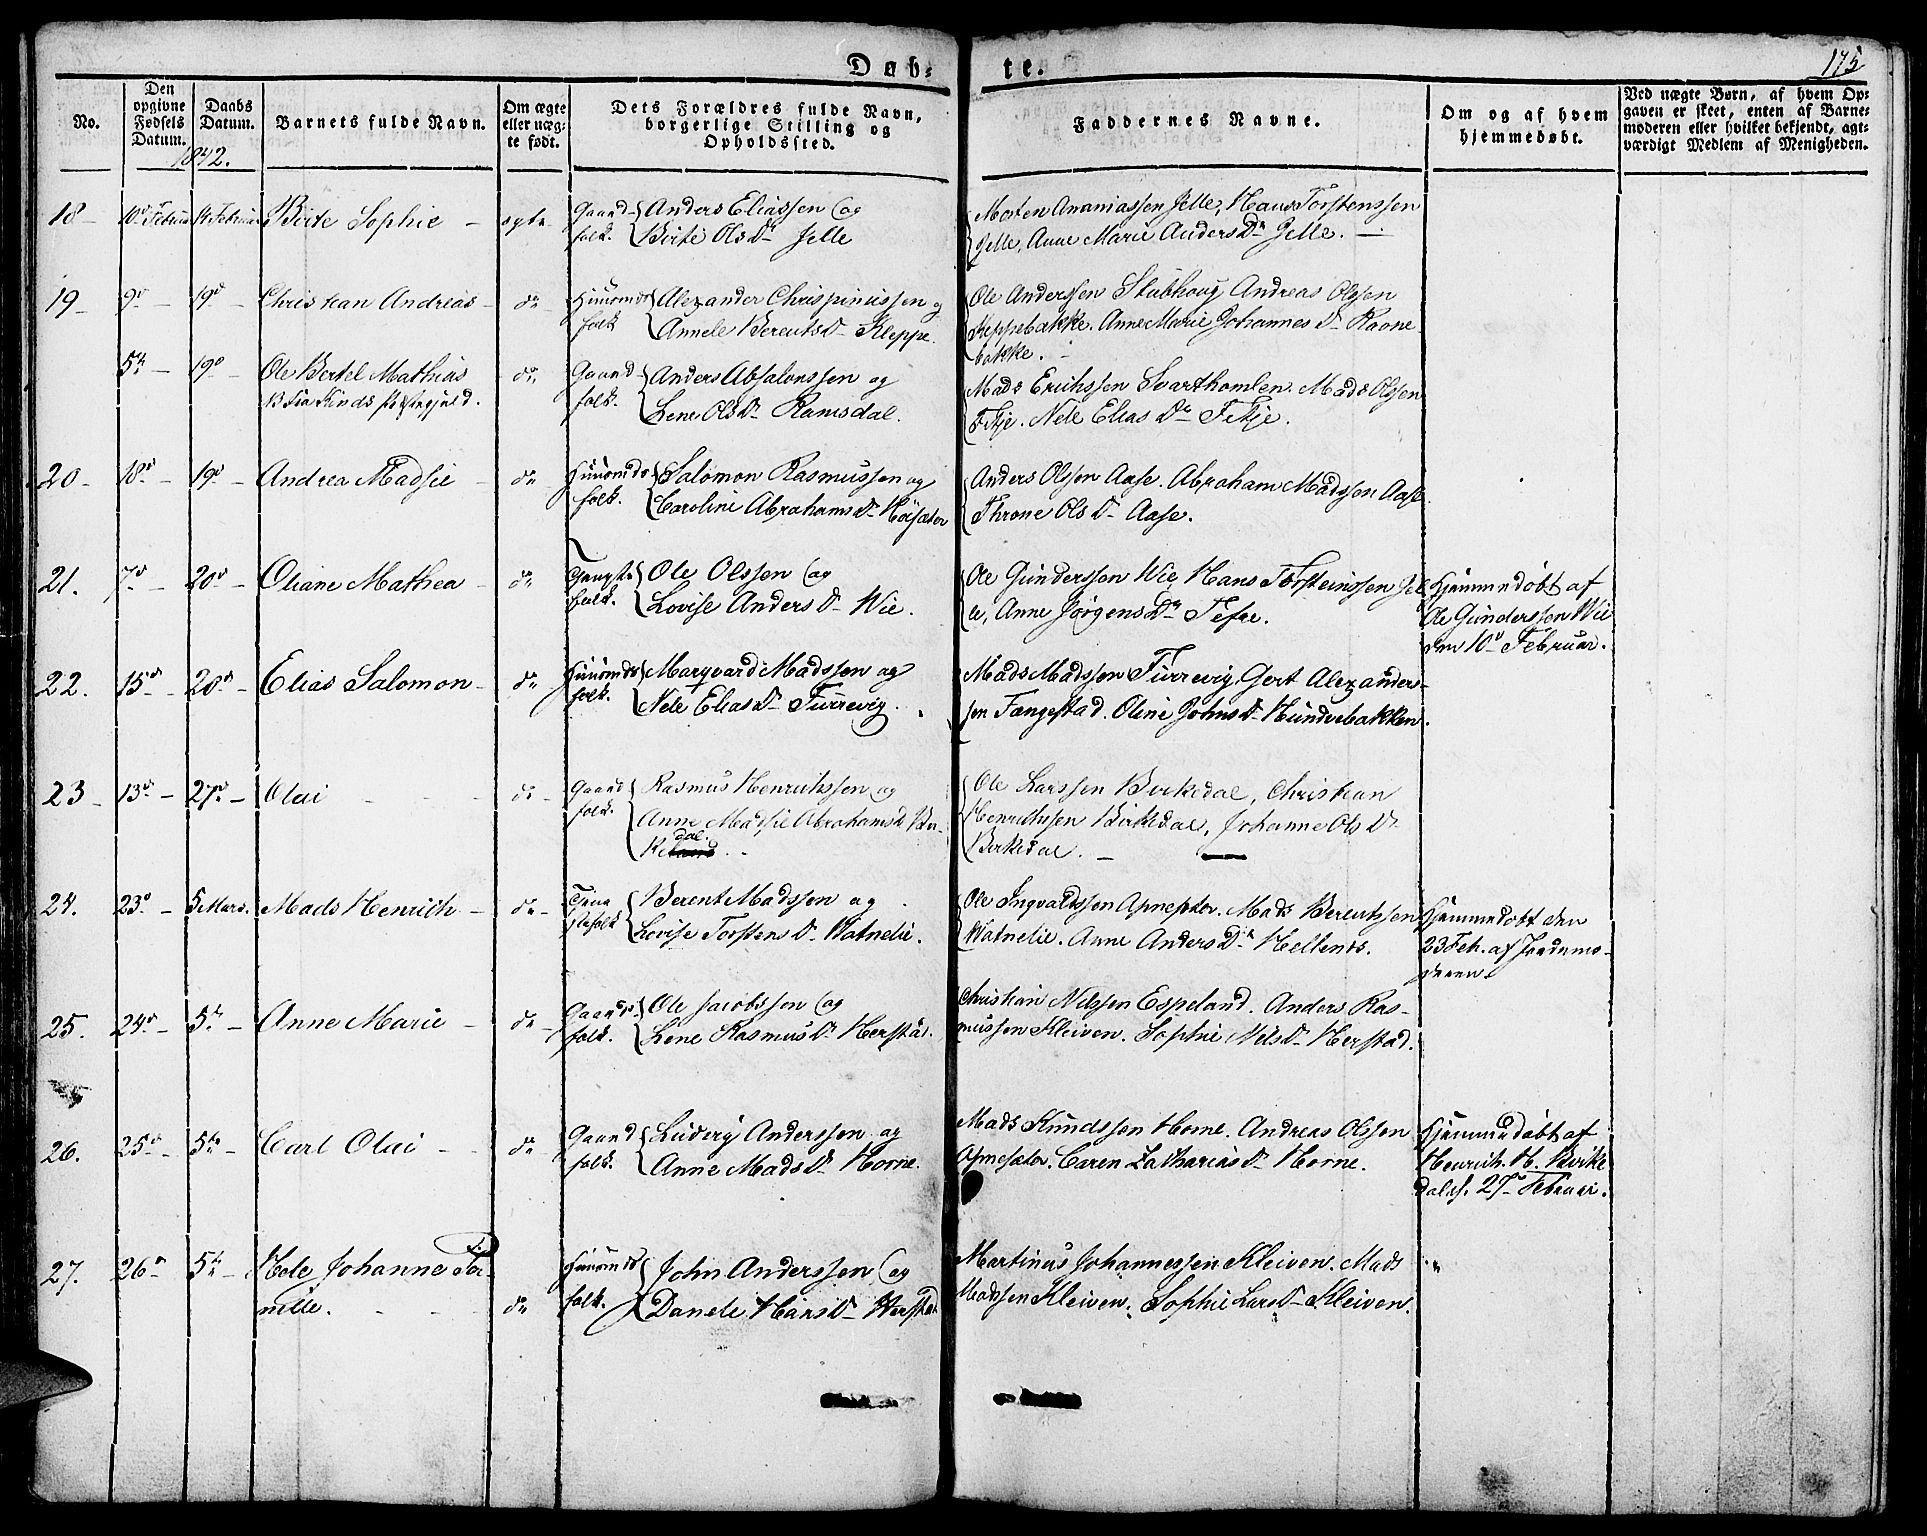 Døb-te.
175
No.
Den opgivne Fødsels Datum.
Daabs Datum.
Barnets fulde Navn.
Om ægte eller uægte født.
Dets Forældres fulde Navn, borgerlige Stilling og Opholdssted.
Faddernes Navne.
Om og af hvem hjemmedøbt.
Ved uægte Børn, af hvem Opgaven er skeet, enten af Barnemoderen eller hvilket bekjendt, agtværdigt Medlem af Menigheden.
1842.
18 - 10d Februar 14 Februar Birte Sophie - ægte
Gaardfolk. Anders Eliassen og
Birte Olsdr Jelle
Morten Ananiassen Jelle, Hans Torstenssen
Jelle, Anne Marie Andersdr Jelle.
19 - 9d - 19d - Christian Andreas - do
Huusmdsfolk Alexander Chrispinussen og
Annele Berentsdr Kleppe.
Ole Anderssen Stubhoug Andreas Olssen
Keppebakke. Anne Marie Johannesdr Raane
bakke.
5te - 19d - Ole Bertel Mathias - do
Gaardfolk. Anders Absalonssen og
Lene Olsdr Ramsdal.
Mads Erichssen Svarthomlen. Mads Olssen
Fitje. Nele Eliasdr Fitje.
20 - 18d - 19d - Andrea Madsie - do
Huusmdsfolk. Salomon Rasmussen og
Caroline Abrahamsdr Høisæter
Anders Olssen Aase. Abraham Madssen Aase.
Throne Olsdr Aase.
21. 7d - 20d - Oliane Mathea - do
folk. Ole Olssen og
Lovise Andersdr Wie.
Ole Gunderssen Wie, Hans Torsteinssen Jel
le, Anne Jørgensdr Tefre.
Hjemmedøbt af
Ole Gunderssen Wie
den 10d Februar.
22. 15d - 20d - Elias Salomon - do
Huusmdsfolk. Marqvard Madssen og
Nele Eliasdr Furrevig.
Mads Madssen Furrevig, Gert Alexanders-
sen Fængestad. Oline Johnsdr Hundvebakken.
23 - 13d - 27d - Olai - do
Gaardfolk. Rasmus Henrichssen og
Anne Madsie Abrahamsdr Bir-
ke dal.
Ole Larssen Birkedal, Christian
Henrichssen Birkedal, Johanne Olsdr
Birkedal.
24. 23d - 5 Mars. Mads Henrich - do
Tjenestefolk Berent Madssen og
Lovise Torstensdr Watnelie.
Ole Ingvaldssen Apnesæter. Mads Berentssen
Watnelie. Anne Andersdr Hellenes.
Hjemmedøbt den
23 Feb. af Jordemo-
deren.
25. 24d - 5te - Anne Marie - do
Gaardfolk. Ole Jacobssen og
Lene Rasmusdr Herstad.
Christian Nilssen Espeland. Anders Ras-
mussen Kleiven. Sophie Nilsdr Herstad.
26. 25d - 5te - Carl Olai - do
Gaardfolk. Ludvig Anderssen og
Anne Madsdr Horne.
Mads Knudssen Horne. Andreas Olssen
Apnesæter. Caren Zachariasdr Horne.
Hjemmedøbt af
Henrich H. Birke
dal d. 27d Februar.
27. 26d - 5te - Johanne - do
Huusmdsfolk. John Anderssen og
Danele Hansdr Herstad
Martinus Johannessen Kleiven. Mads
Madssen Kleiven. Sophie Larsdr Kleiven.